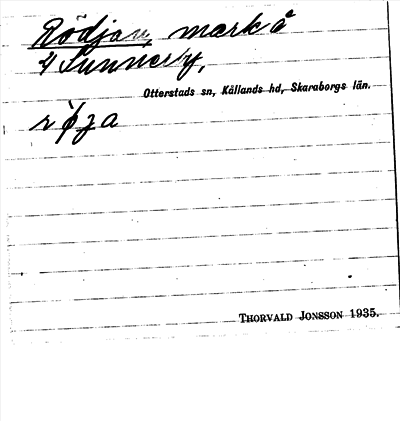 Rödjan, mark å
4 Sunnerby,
Otterstads sn, Kållands hd, Skaraborgs län.
Thorvald Jonsson 1935.